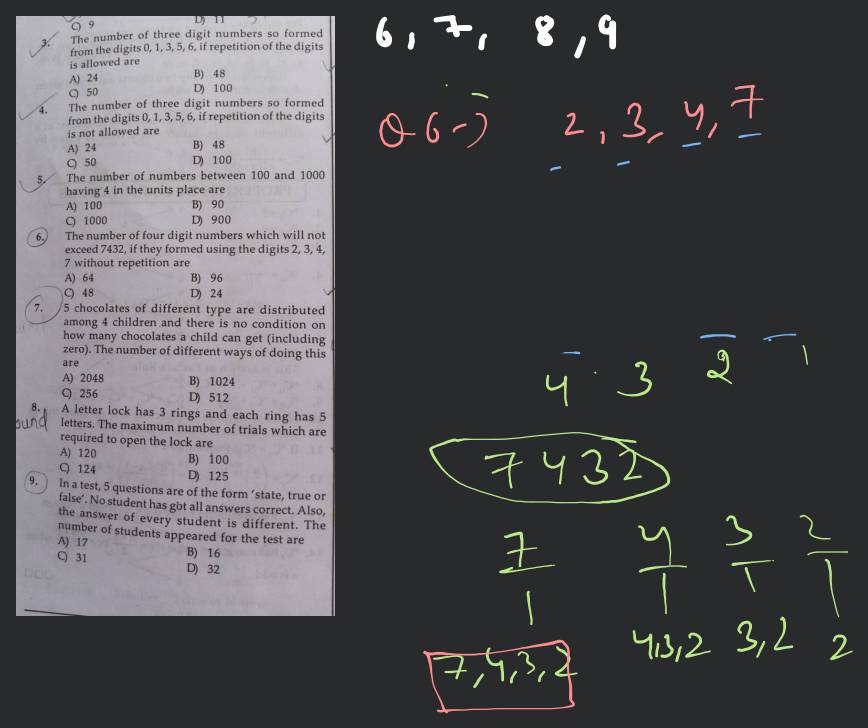 C) 9 D) 11
3. The number of three digit numbers so formed
from the digits 0, 1, 3, 5, 6, if repetition of the digits
is allowed are
A) 24 B) 48
C) 50 D) 100
4. The number of three digit numbers so formed
from the digits 0, 1, 3, 5, 6, if repetition of the digits
is not allowed are
A) 24 B) 48
C) 50 D) 100
5. The number of numbers between 100 and 1000
having 4 in the units place are
A) 100 B) 90
C) 1000 D) 900
6. The number of four digit numbers which will not
exceed 7432, if they formed using the digits 2, 3, 4,
7 without repetition are
A) 64 B) 96
C) 48 D) 24
7. 5 chocolates of different type are distributed
among 4 children and there is no condition on
how many chocolates a child can get (including
zero). The number of different ways of doing this
are
A) 2048 B) 1024
C) 256 D) 512
8. A letter lock has 3 rings and each ring has 5
letters. The maximum number of trials which are
required to open the lock are
A) 120 B) 100
C) 124 D) 125
9. In a test, 5 questions are of the form 'state, true or
false'. No student has got all answers correct. Also,
the answer of every student is different. The
number of students appeared for the test are
A) 17 B) 16
C) 31 D) 32
6, 7, 8, 9
Q 6 → 2, 3, 4, 7
4 3 2 1
7432
7 4 3 2
1 1 1 1
4,3,2 3,2 2
7,4,3,2